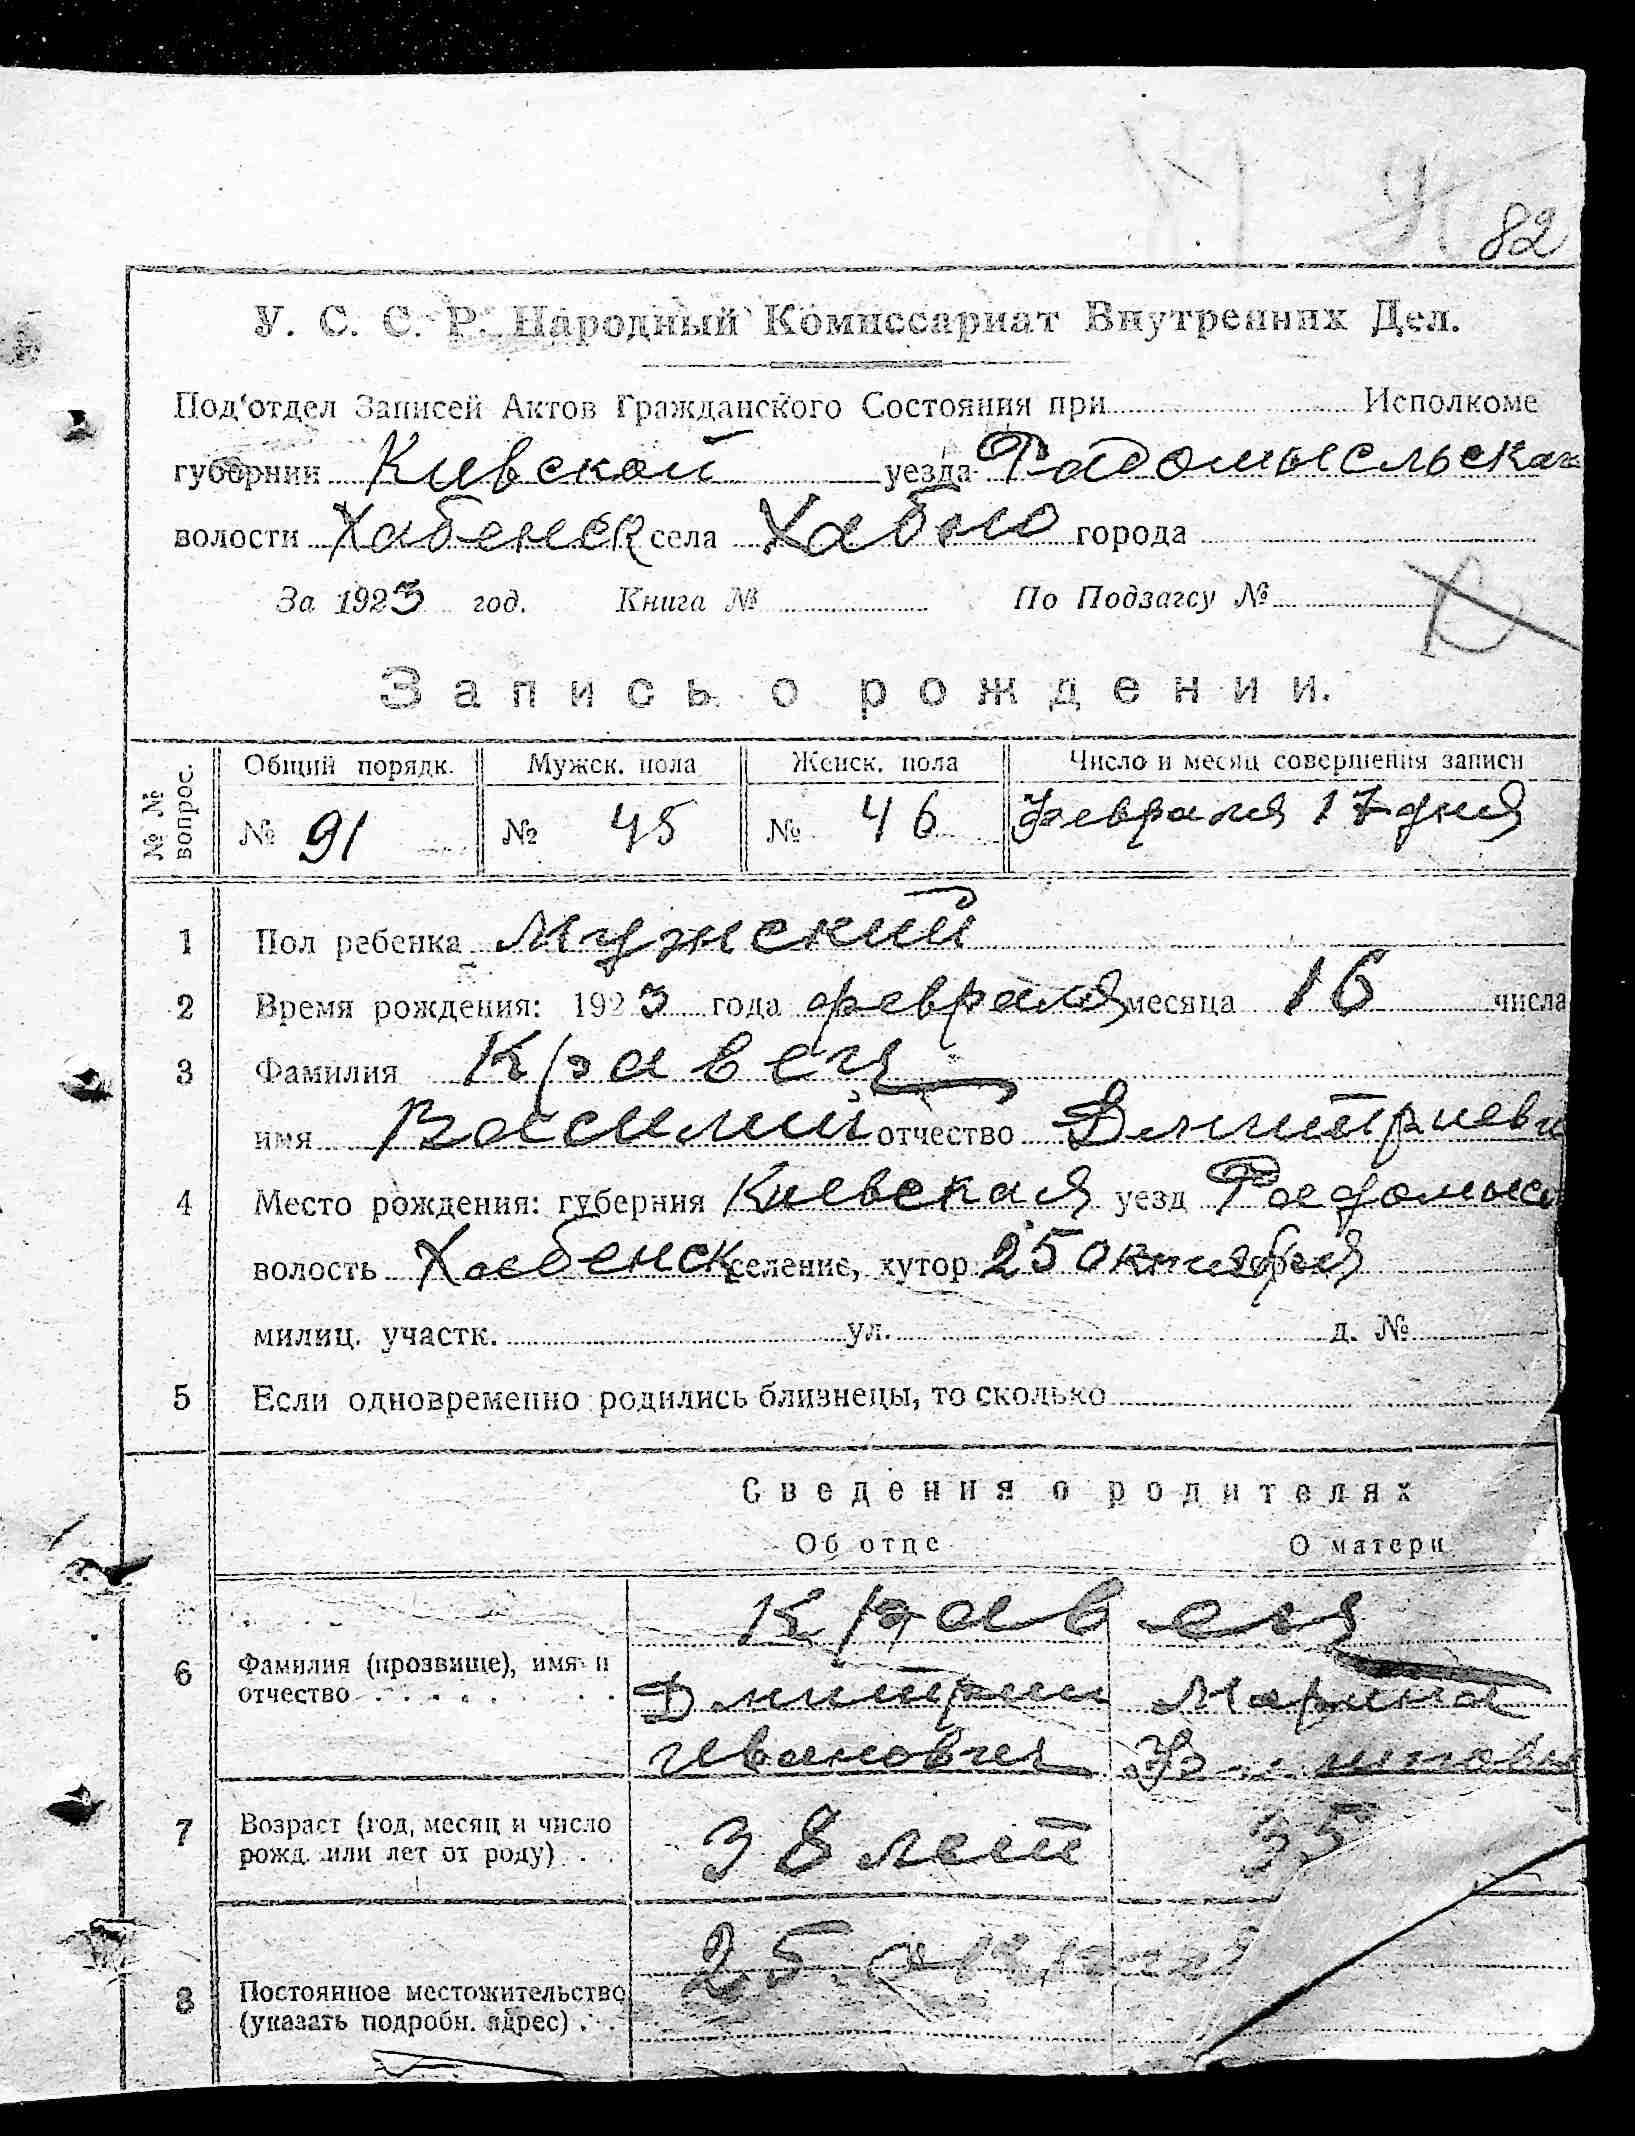 82
У. С. С. Р. Народный Комиссариат Внутренних Дел.
Под'отдел Записей Актов Гражданского Состояния при Исполкоме
губернии Киевской уезда Радомысльская
волости Хабенск села Хабно города
За 1923 год. Книга № По Подзагсу №
Запись о рождении.
№ № вопрос. Общий порядк. Мужск. пола Женск. пола Число и месяц совершения записи
№ 91 № 45 № 46 февраля 17 дня
1 Пол ребенка Мужский
2 Время рождения: 1923 года февраля месяца 16 числа
3 Фамилия Кравец
имя Василий отчество Дмитриеви
4 Место рождения: губерния Киевская уезд Радомысл
волость Хабенск селение, хутор 25 октября
милиц. участк. ул. д. №
5 Если одновременно родились близнецы, то сколько
Сведения о родителях
Об отце О матери
Кравец
6 Фамилия (прозвище), имя и отчество Дмитрий Марина
Иванович
7 Возраст (год, месяц и число рожд. или лет от роду) 38 лет 35
8 Постоянное местожительство (указать подробн. адрес) 25